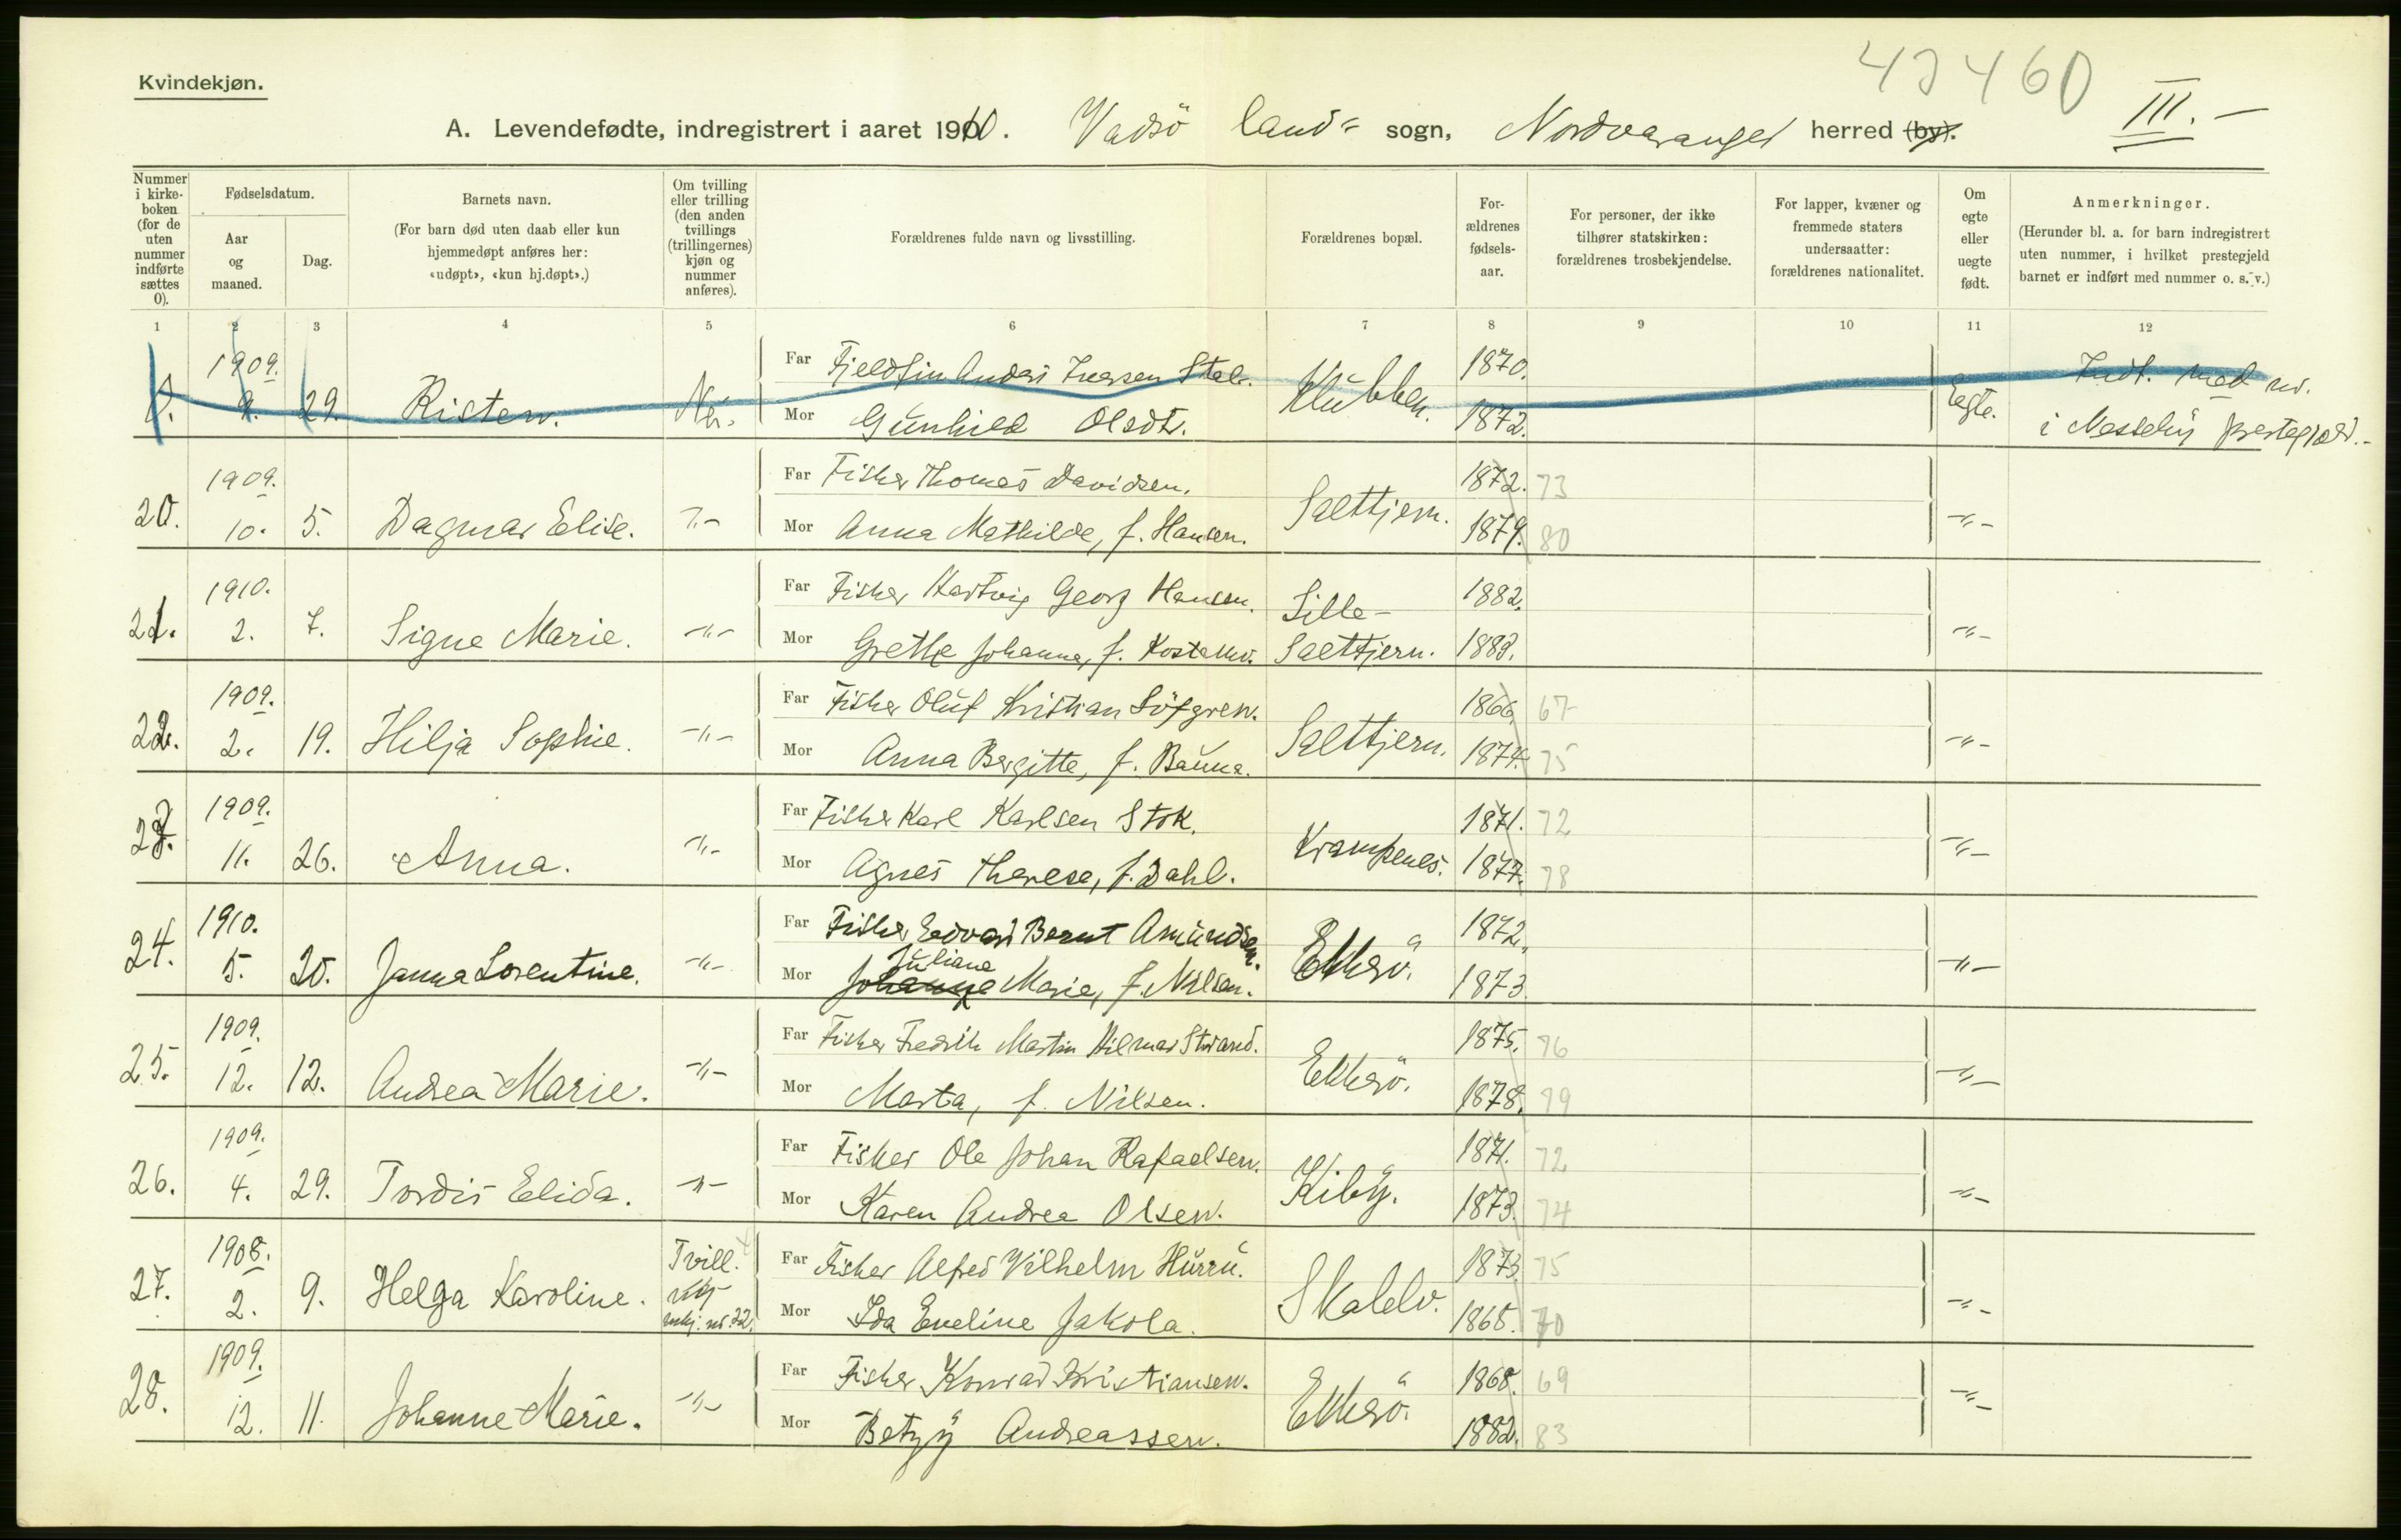 43460
Kvindekjøn.
A. Levendefødte, indregistrert i aaret 1910. Vadsö land= sogn, Nordvaranger herred (by). III.-
Nummer i kirkeboken (for de uten nummer indførte sættes 0).
Fødselsdatum.
Aar og maaned.
Dag.
Barnets navn.
(For barn død uten daab eller kun hjemmedøpt anføres her: «udøpt», «kun hj.døpt».)
Om tvilling eller trilling (den anden tvillings (trillingernes) kjøn og nummer anføres).
Forældrenes fulde navn og livsstilling.
Forældrenes bopæl.
Forældrenes fødselsaar.
For personer, der ikke tilhører statskirken: forældrenes trosbekjendelse.
For lapper, kvæner og fremmede staters undersaatter: forældrenes nationalitet.
Om egte eller uegte født.
Anmerkninger.
(Herunder bl. a. for barn indregistrert uten nummer, i hvilket prestegjeld barnet er indført med nummer o. s. v.)
1 2 3 4 5 6 7 8 9 10 11 12
0. 1909. 9. 29. Risten. Nei. Far Fjeldfin Anders Iversen Stal. Klubben. 1870. Egte. Indf. med nr.
Mor Gunhild Olsdt. 1872. i Nesseby prestegjeld.-
20. 1909. 10. 5. Dagmar Elise. Far Fisker Thomas Davidsen. Salttjern. 1872. 73 -"-
Mor Anna Mathilde, f. Hansen. 1879. 80
21. 1910. 2. 7. Signe Marie. -"- Far Fisker Hartvig Georg Hansen. Lille- 1882. -"-
Mor Grethe Johanna, f. Kostamo. Salttjern. 1883.
22. 1909. 2. 19. Hilja Sophie. -"- Far Fisker Oluf Kristian Löfgren. Salttjern. 1866. 67 -"-
Mor Anna Bergitte, f. Bauna. 1874. 75
23. 1909. 11. 26. Anna. -"- Far Fisker Karl Karlsen Stok. Krampenes. 1871. 72 -"-
Mor Agnes Therese, f. Dahl. 1877. 78
24. 1910. 5. 20. Janna Lorentine. -"- Far Fisker Edvard Bernt Amundsen. Ekkerö. 1872. -"-
Mor Johanna Juliane Marie, f. Nilsen. 1873.
25. 1909. 12. 12. Andrea Marie. -"- Far Fisker Fredrik Martin Hilmar Strand. Ekkerö. 1875. 76 -"-
Mor Marta, f. Nilsen. 1878. 79
26. 1909. 4. 29. Tordis Elida. -"- Far Fisker Ole Johan Rafaelsen. Kiby. 1871. 72 -"-
Mor Karen Andrea Olsen. 1873. 74
27. 1908. 2. 9. Helga Karoline. Tvill. mkj. nr. 22. Far Fisker Alfred Vilhelm Hurru. Skalelv. 1873. 75 -"-
Mor Ida Eveline Jakola. 1868. 70
28. 1909. 12. 11. Johanne Marie. -"- Far Fisker Konrad Kristiansen. Ekkerö. 1868. 69 -"-
Mor Betzy Andreassen. 1882. 83